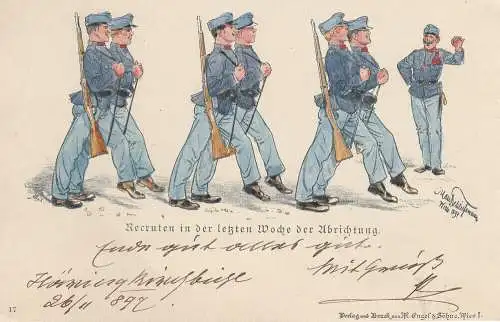 Recruten in der letzten Woche der Abrichtung.
Ende gut alles gut.
Mit Gruß
26/11 897.
17
Verlag und Druck von M. Engel & Söhne, Wien I.